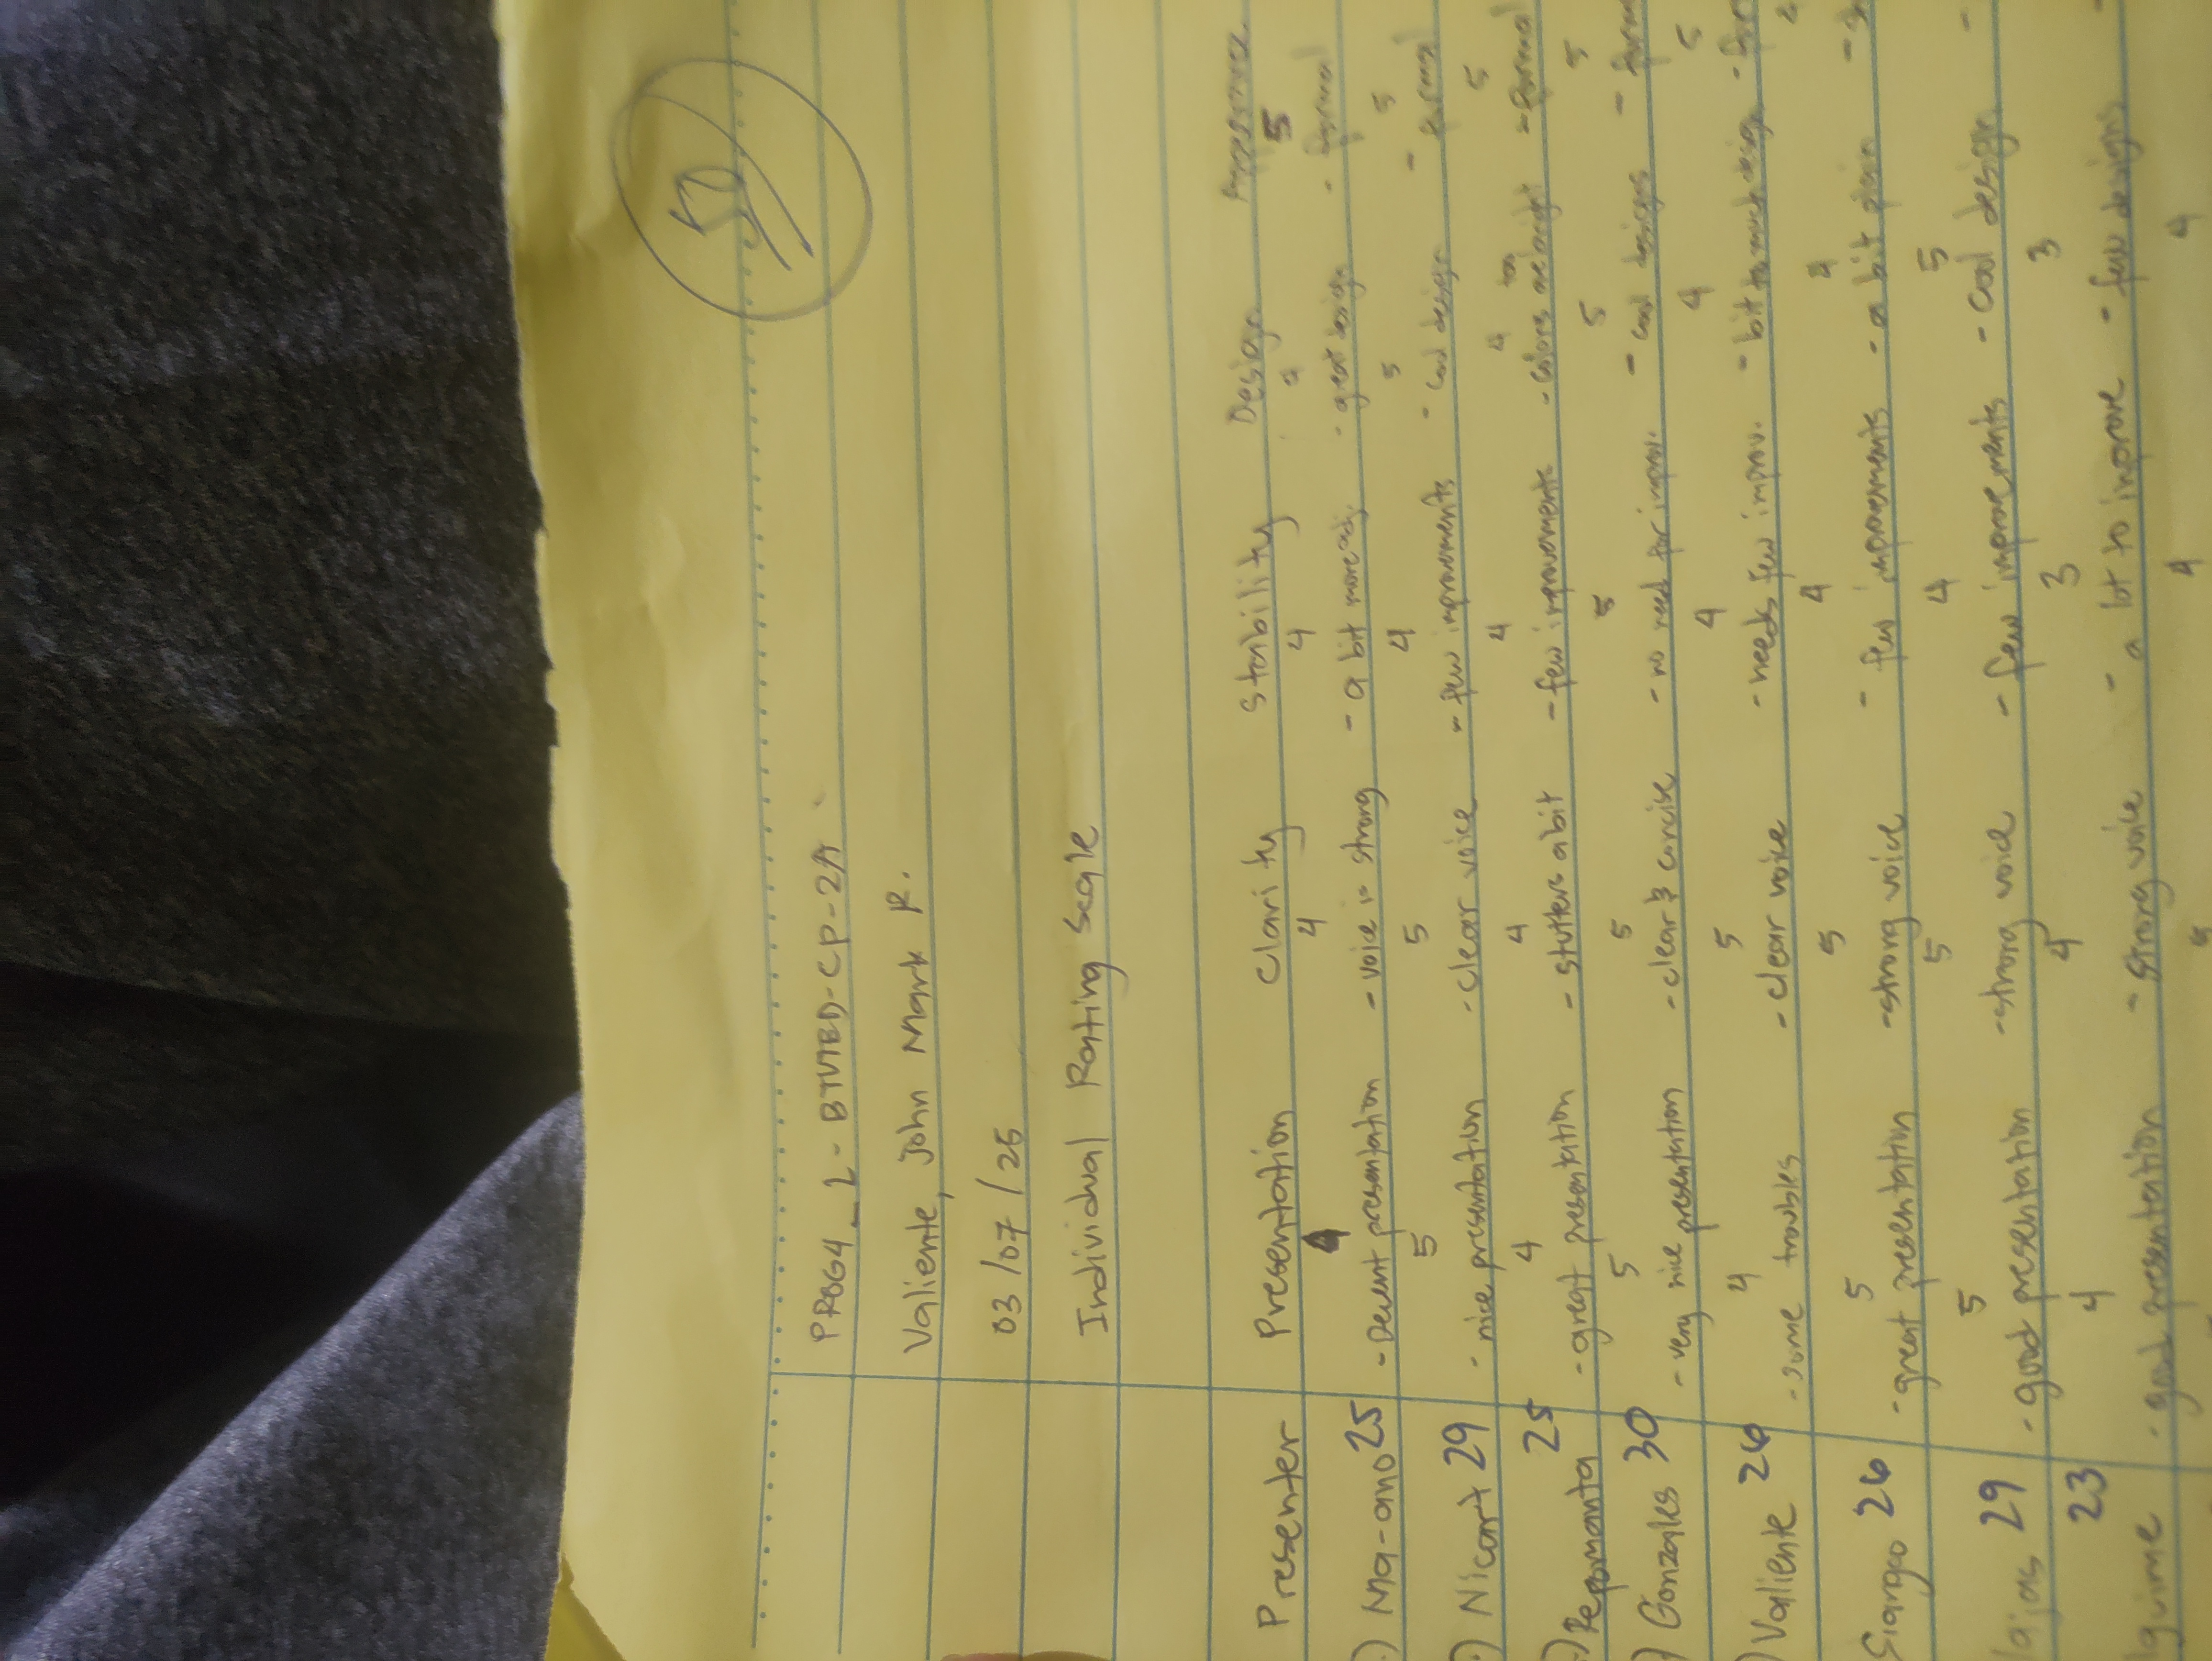 50
PROG4_2-BTVTED-CP-2A
Valiente, John Mark R.
03/07/25
Individual Rating Scale
Presenter Presentation Clarity Stability Design Appearance
4 4 4 5
Ma-ano 25 - Decent presentation - voice is strong - a bit more adj. - great design - formal
5 5 4 5 5
Nicart 29 - nice presentation - clear voice - few improvements - cool design - formal
4 4 4 4 5
Repomanta 25 - great presentation - stutters a bit - few improvements - colors are too bright - formal
5 5 5 5 5
Gonzales 30 - very nice presentation - clear & concise - no need for improv. - cool designs
4 5 4 4 5
Valiente 26 - some troubles - clear voice - needs few improv. - bit to much design
5 5 4 4
Siargao 26 - great presentation - strong voice - few improvements - a bit plain
5 5 4 5
29 - good presentation - strong voice - few improvements - cool design -
4 4 3 3
23 - good presentation - strong voice - a lot to improve - few designs -
4 4